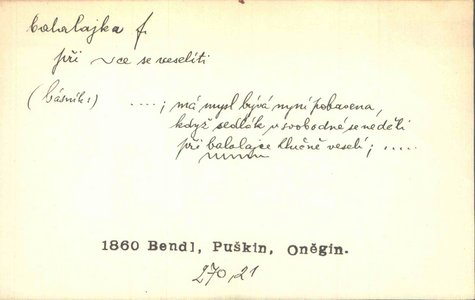 balalajka f.
při ~ce se veseliti
(básník:) ....; má mysl bývá nyní pobavena,
když sedlák v svobodné se neděli
při balalajce hlučně veselí; .....
1860 Bendl, Puškin, Oněgin.
270,21